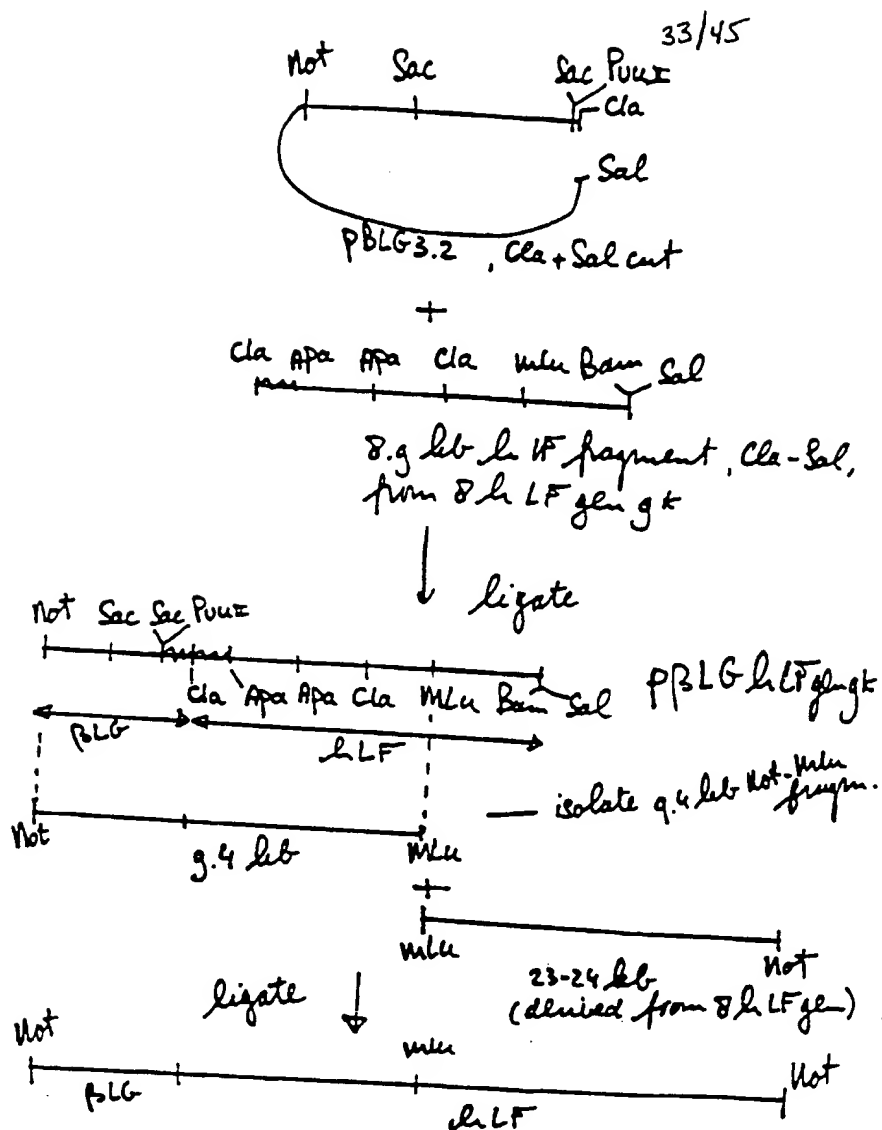 33/45
Not Sac Sac PvuI
Cla
Sal
pBLG3.2, Cla+Sal cut
+
Cla Apa Apa Cla Mlu Bam Sal
8.9 kb hLF fragment, Cla-Sal,
from 8hLFgengk
ligate
Not Sac Sac PvuI
Cla Apa Apa Cla MLu Bam Sal pβLGhLFgengk
βLG hLF
— isolate 9.4 kb Not-Mlu
fragm.
Not 9.4 kb MLu
+
MLu Not
23-24 kb
(derived from 8hLFgen)
ligate
Not Mlu Not
βLG hLF